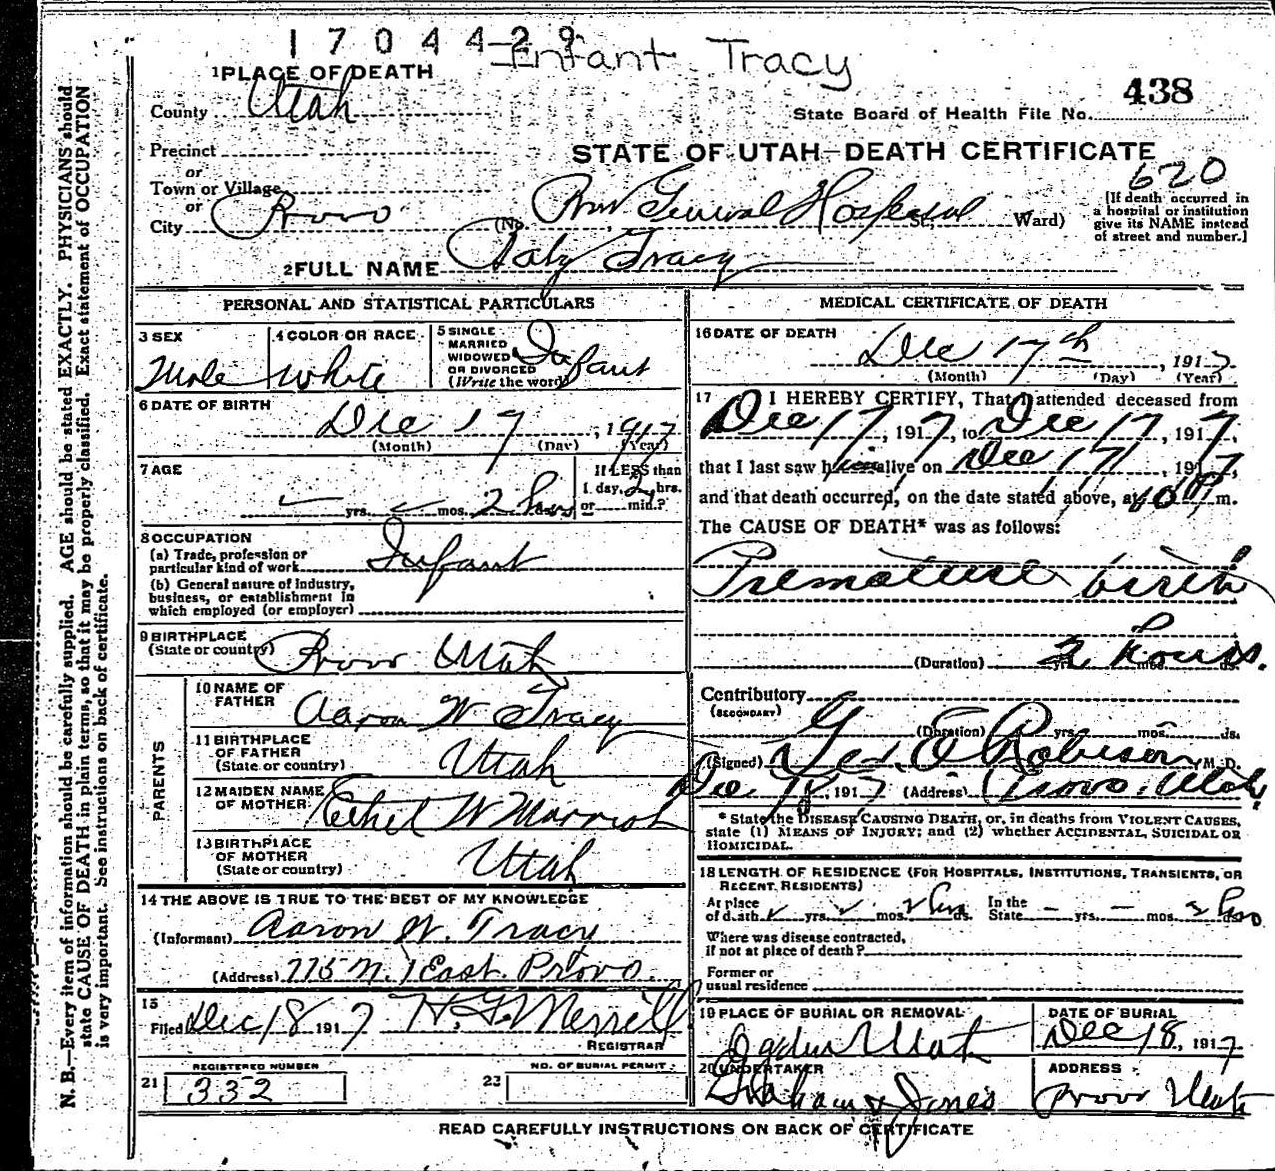 1704429
Infant Tracy
1 PLACE OF DEATH
438
County Utah
State Board of Health File No.
Precinct
STATE OF UTAH—DEATH CERTIFICATE
or
Town or Village
620
or
City Provo (No. Prov General Hospital St. Ward)
[If death occurred in
a hospital or institution
give its NAME instead
of street and number.]
2 FULL NAME Baby Tracy
PERSONAL AND STATISTICAL PARTICULARS
3 SEX
Male
4 COLOR OR RACE
White
5 SINGLE
MARRIED
WIDOWED
OR DIVORCED
(Write the word)
Infant
6 DATE OF BIRTH
Dec 17, 1917
(Month) (Day) (Year)
7 AGE
yrs. mos. 2 hrs
If LESS than
1 day, 2 hrs.
or min.?
8 OCCUPATION
(a) Trade, profession or
particular kind of work Infant
(b) General nature of industry,
business, or establishment in
which employed (or employer)
9 BIRTHPLACE
(State or country) Provo Utah
PARENTS
10 NAME OF
FATHER Aaron W Tracy
11 BIRTHPLACE
OF FATHER
(State or country) Utah
12 MAIDEN NAME
OF MOTHER Ethel W
13 BIRTHPLACE
OF MOTHER
(State or country) Utah
14 THE ABOVE IS TRUE TO THE BEST OF MY KNOWLEDGE
(Informant) Aaron W. Tracy
(Address) 775 N. 1 East. Provo.
15
Filed Dec 18 1917 H. G. Merrill
REGISTRAR
REGISTERED NUMBER
21 332
NO. OF BURIAL PERMIT
22
MEDICAL CERTIFICATE OF DEATH
16 DATE OF DEATH
Dec 17th, 1917
(Month) (Day) (Year)
17 I HEREBY CERTIFY, That I attended deceased from
Dec 17, 1917, to Dec 17, 1917,
that I last saw him alive on Dec 17, 1917,
and that death occurred, on the date stated above, at m.
The CAUSE OF DEATH* was as follows:
Premature birth
(Duration) yrs. 2 hours. mos. ds.
Contributory
(SECONDARY)
(Duration) yrs. mos. ds.
(Signed) Geo. E Robison, M. D.
Dec 18, 1917 (Address) Provo, Utah
* State the DISEASE CAUSING DEATH, or, in deaths from VIOLENT CAUSES,
state (1) MEANS OF INJURY; and (2) whether ACCIDENTAL, SUICIDAL OR
HOMICIDAL.
18 LENGTH OF RESIDENCE (FOR HOSPITALS, INSTITUTIONS, TRANSIENTS, OR
RECENT RESIDENTS)
At place
of death yrs. mos. 2 hrs ds.
In the
State — yrs. — mos. 2 hrs
Where was disease contracted,
if not at place of death?
Former or
usual residence
19 PLACE OF BURIAL OR REMOVAL
Ogden Utah
DATE OF BURIAL
Dec 18, 1917
20 UNDERTAKER
Graham & Jones
ADDRESS
Provo Utah
READ CAREFULLY INSTRUCTIONS ON BACK OF CERTIFICATE
N. B.—Every item of information should be carefully supplied. AGE should be stated EXACTLY. PHYSICIANS should
state CAUSE OF DEATH in plain terms, so that it may be properly classified. Exact statement of OCCUPATION
is very important. See instructions on back of certificate.